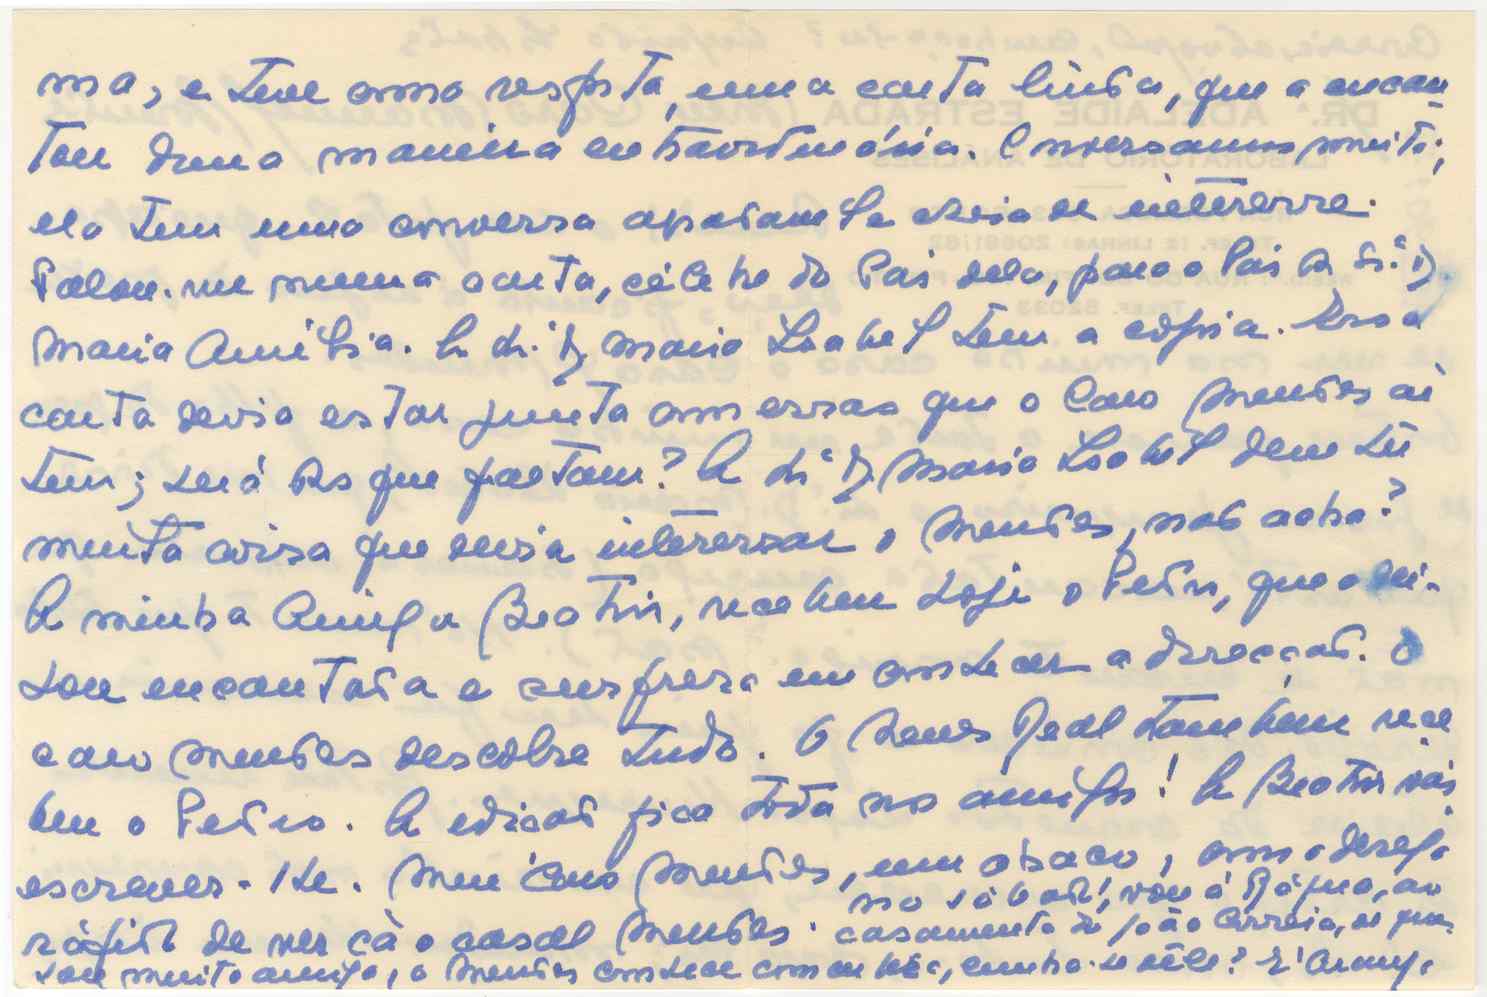 ma, e teve como resposta, uma carta linda, que a encan
tou duma maneira extraordinária. Conversamos muito;
ela tem uma conversa apaixonante cheia de interesse.
Falou-me numa carta, célebre do Pai dela, para o Pai da Sr.ª D.
Maria Amélia. A Sr.ª D. Maria Isabel tem a cópia. Essa
carta devia estar junta com essas que o Caro Mendes aí
tem; será das que faltam? A Sr.ª D. Maria Isabel deve ter
muita coisa que devia interessar o Mendes, não acha?
A minha Amiga Beatriz, recebeu hoje o Pedro, que a dei-
xou encantada e surpresa em conhecer a direcção. O
caro Mendes descobre tudo. O Neves Real também rece
beu o Pedro. A edição fica toda nos amigos! A Beatriz vai
escrever-lhe. Meu Caro Mendes, um abraço, com o desejo
rápido de ver cá o casal Mendes. no sábado, vou à Régua, ao
casamento do João Correia, de quem
sou muito amiga, o Mendes conhece com certeza, lembra-se dêle? É Araújo